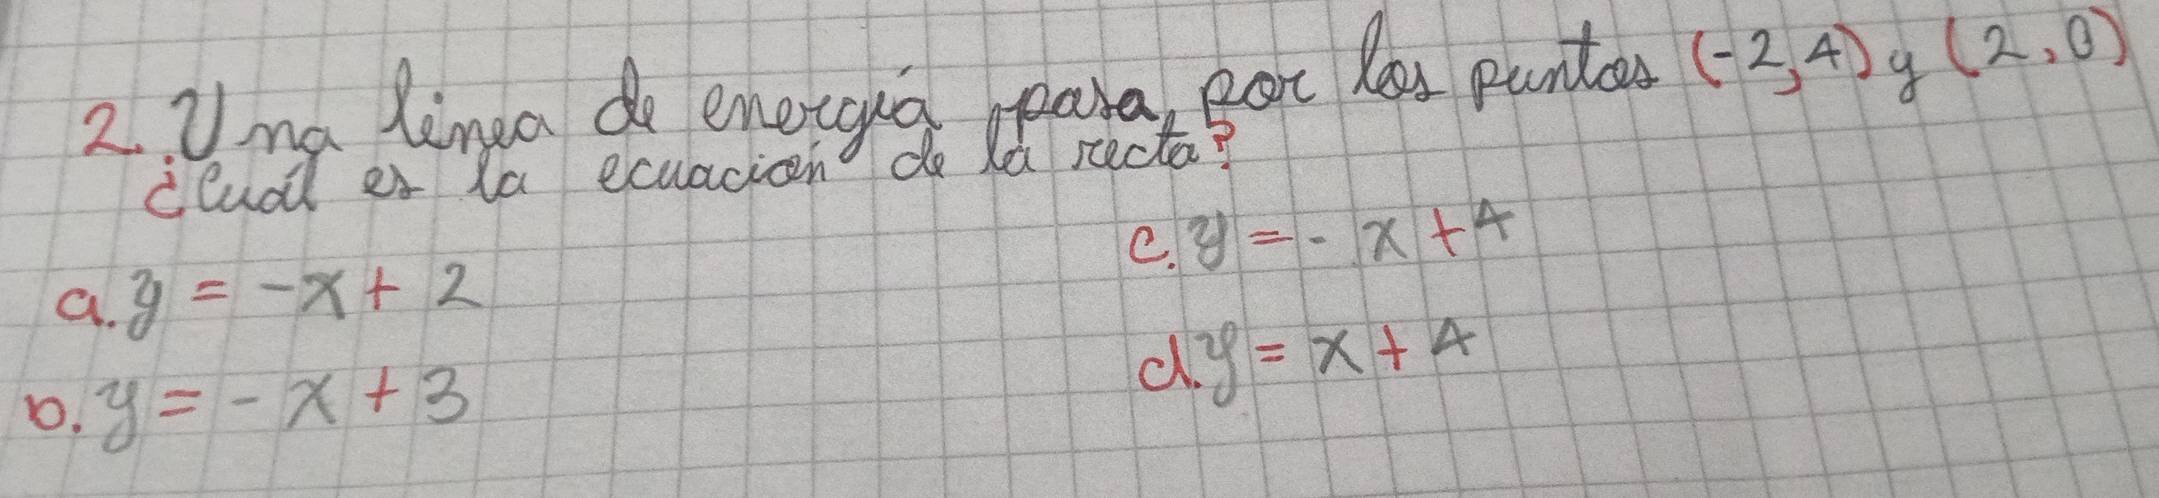 2. Una línea de energía pasa por los puntos (-2,4) y (2,0)
¿Cuál es la ecuación de la recta?
a. y = -x + 2
b. y = - x + 3
c. y = - x + 4
d. y = x + 4